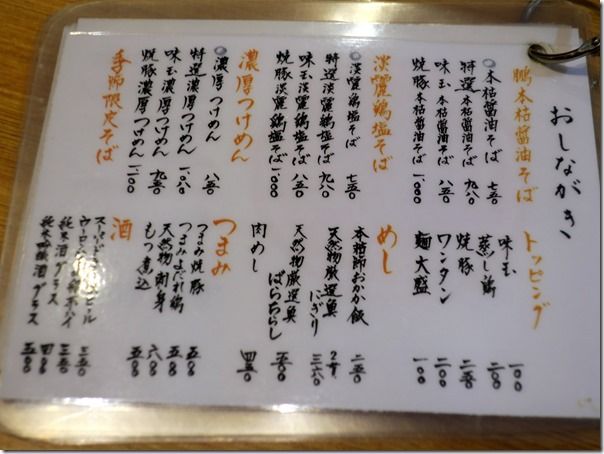 おしながき
鵬本枯醤油そば
◎本枯醤油そば 七五〇
特選本枯醤油そば 九八〇
味玉本枯醤油そば 八五〇
焼豚本枯醤油そば 一〇〇〇
淡麗鶏塩そば
◎淡麗鶏塩そば 七五〇
特選淡麗鶏塩そば 九八〇
味玉淡麗鶏塩そば 八五〇
焼豚淡麗鶏塩そば 一〇〇〇
濃厚つけめん
◎濃厚つけめん 八五〇
特選濃厚つけめん 一〇八〇
味玉濃厚つけめん 九五〇
焼豚濃厚つけめん 一一〇〇
限定そば
トッピング
味玉 一〇〇
蒸し鶏 二〇〇
焼豚 二五〇
ワンタン 二〇〇
麺大盛 一〇〇
めし
本枯節おかか飯 二五〇
天然物厳選魚にぎり 2ケ 三六〇
天然物厳選魚ばらちらし 五〇〇
肉めし 四五〇
つまみ
つまみ焼豚 五〇〇
つまみよだれ鶏 五〇〇
天然物刺身 六〇〇
もつ煮込 五〇〇
酒
ビール 三五〇
ウーロン 三五〇
純米酒グラス 四〇〇
純米吟醸酒グラス 五〇〇